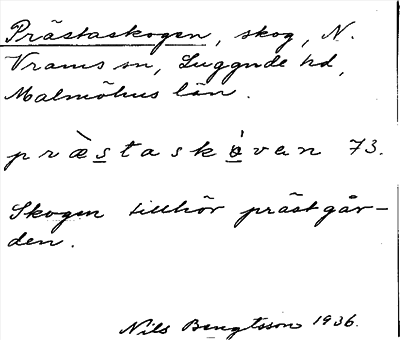 Prästaskogen, skog, N.
Vrams sn, Luggude hd,
Malmöhus län.
præ̀staskǫ́van 73.
Skogen tillhör prästgår-
den.
Nils Bengtsson 1936.